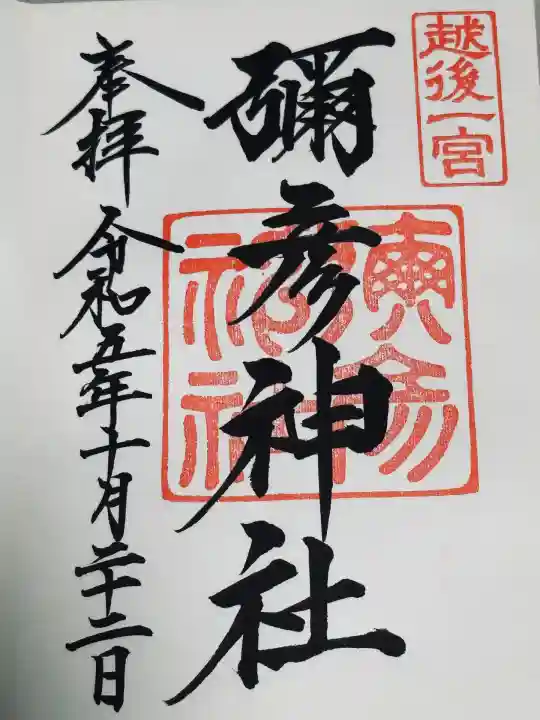 越後一宮
彌彦神社
奉拝 令和五年十月二十二日